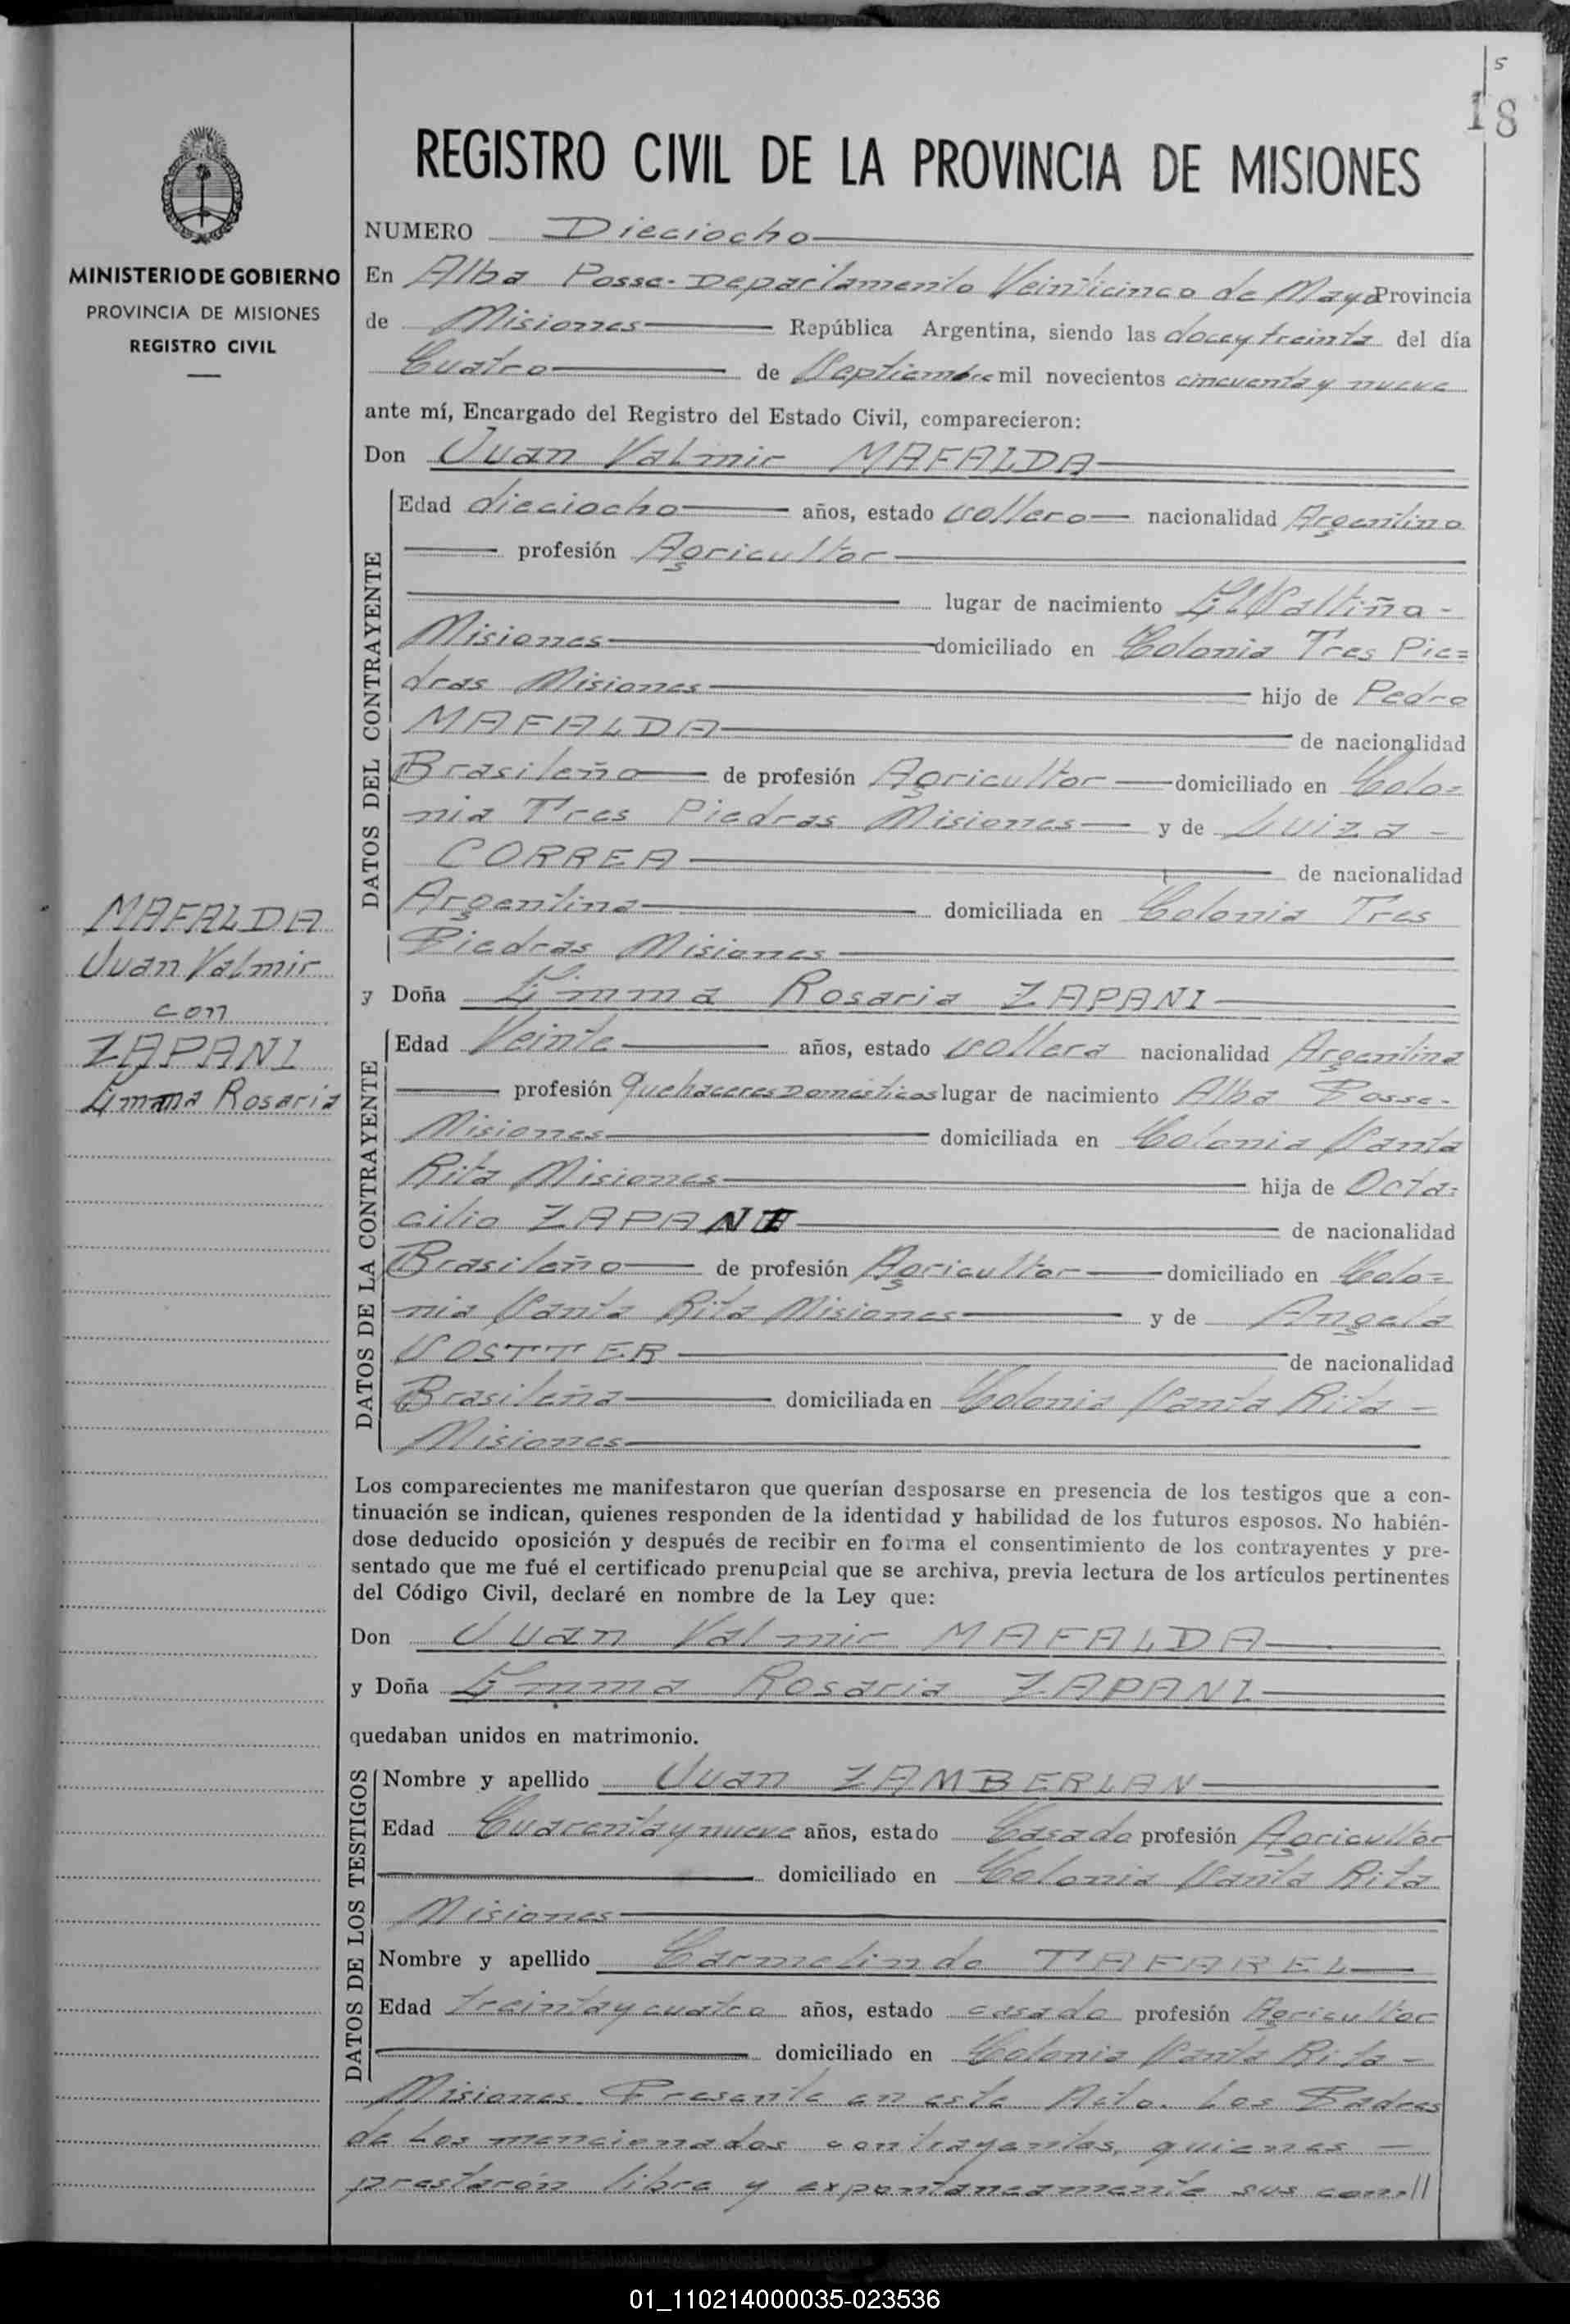 5
18
REGISTRO CIVIL DE LA PROVINCIA DE MISIONES
MINISTERIO DE GOBIERNO
PROVINCIA DE MISIONES
REGISTRO CIVIL
NUMERO Dieciocho
En Alba Posse-Departamento Veinticinco de Mayo Provincia
de Misiones República Argentina, siendo las doce y treinta del día
Cuatro de Septiembre mil novecientos cincuenta y nueve
ante mí, Encargado del Registro del Estado Civil, comparecieron:
Don Juan Valmir MAFALDA
DATOS DEL CONTRAYENTE
Edad dieciocho años, estado soltero nacionalidad Argentino
profesión Agricultor
lugar de nacimiento El Saltiño -
Misiones domiciliado en Colonia Tres Pie=
dras Misiones hijo de Pedro
MAFALDA de nacionalidad
Brasileño de profesión Agricultor domiciliado en Colo=
nia Tres Piedras Misiones y de Luiza -
CORREA de nacionalidad
Argentina domiciliada en Colonia Tres
Piedras Misiones
MAFALDA
Juan Valmir
con
ZAPANI
Emma Rosaria
y Doña Emma Rosaria ZAPANI
DATOS DE LA CONTRAYENTE
Edad Veinte años, estado soltera nacionalidad Argentina
profesión Quehaceres Domésticos lugar de nacimiento Alba Posse-
Misiones domiciliada en Colonia Santa
Rita Misiones hija de Octa=
cilio ZAPANI de nacionalidad
Brasileño de profesión Agricultor domiciliado en Colo=
nia Santa Rita Misiones y de Angela
SOSTTER de nacionalidad
Brasileña domiciliada en Colonia Santa Rita -
Misiones
Los comparecientes me manifestaron que querían desposarse en presencia de los testigos que a con-
tinuación se indican, quienes responden de la identidad y habilidad de los futuros esposos. No habién-
dose deducido oposición y después de recibir en forma el consentimiento de los contrayentes y pre-
sentado que me fué el certificado prenupcial que se archiva, previa lectura de los artículos pertinentes
del Código Civil, declaré en nombre de la Ley que:
Don Juan Valmir MAFALDA
y Doña Emma Rosaria ZAPANI
quedaban unidos en matrimonio.
DATOS DE LOS TESTIGOS
Nombre y apellido Juan ZAMBERLAN
Edad Cuarenta y nueve años, estado Casado profesión Agricultor
domiciliado en Colonia Santa Rita
Misiones
Nombre y apellido Carmelindo TAFAREL
Edad treinta y cuatro años, estado casado profesión Agricultor
domiciliado en Colonia Santa Rita -
Misiones. Presente en este Acto. Los Padres
de los mencionados contrayentes, quienes -
prestarón libre y expontaneamente sus con.//
01_110214000035-023536